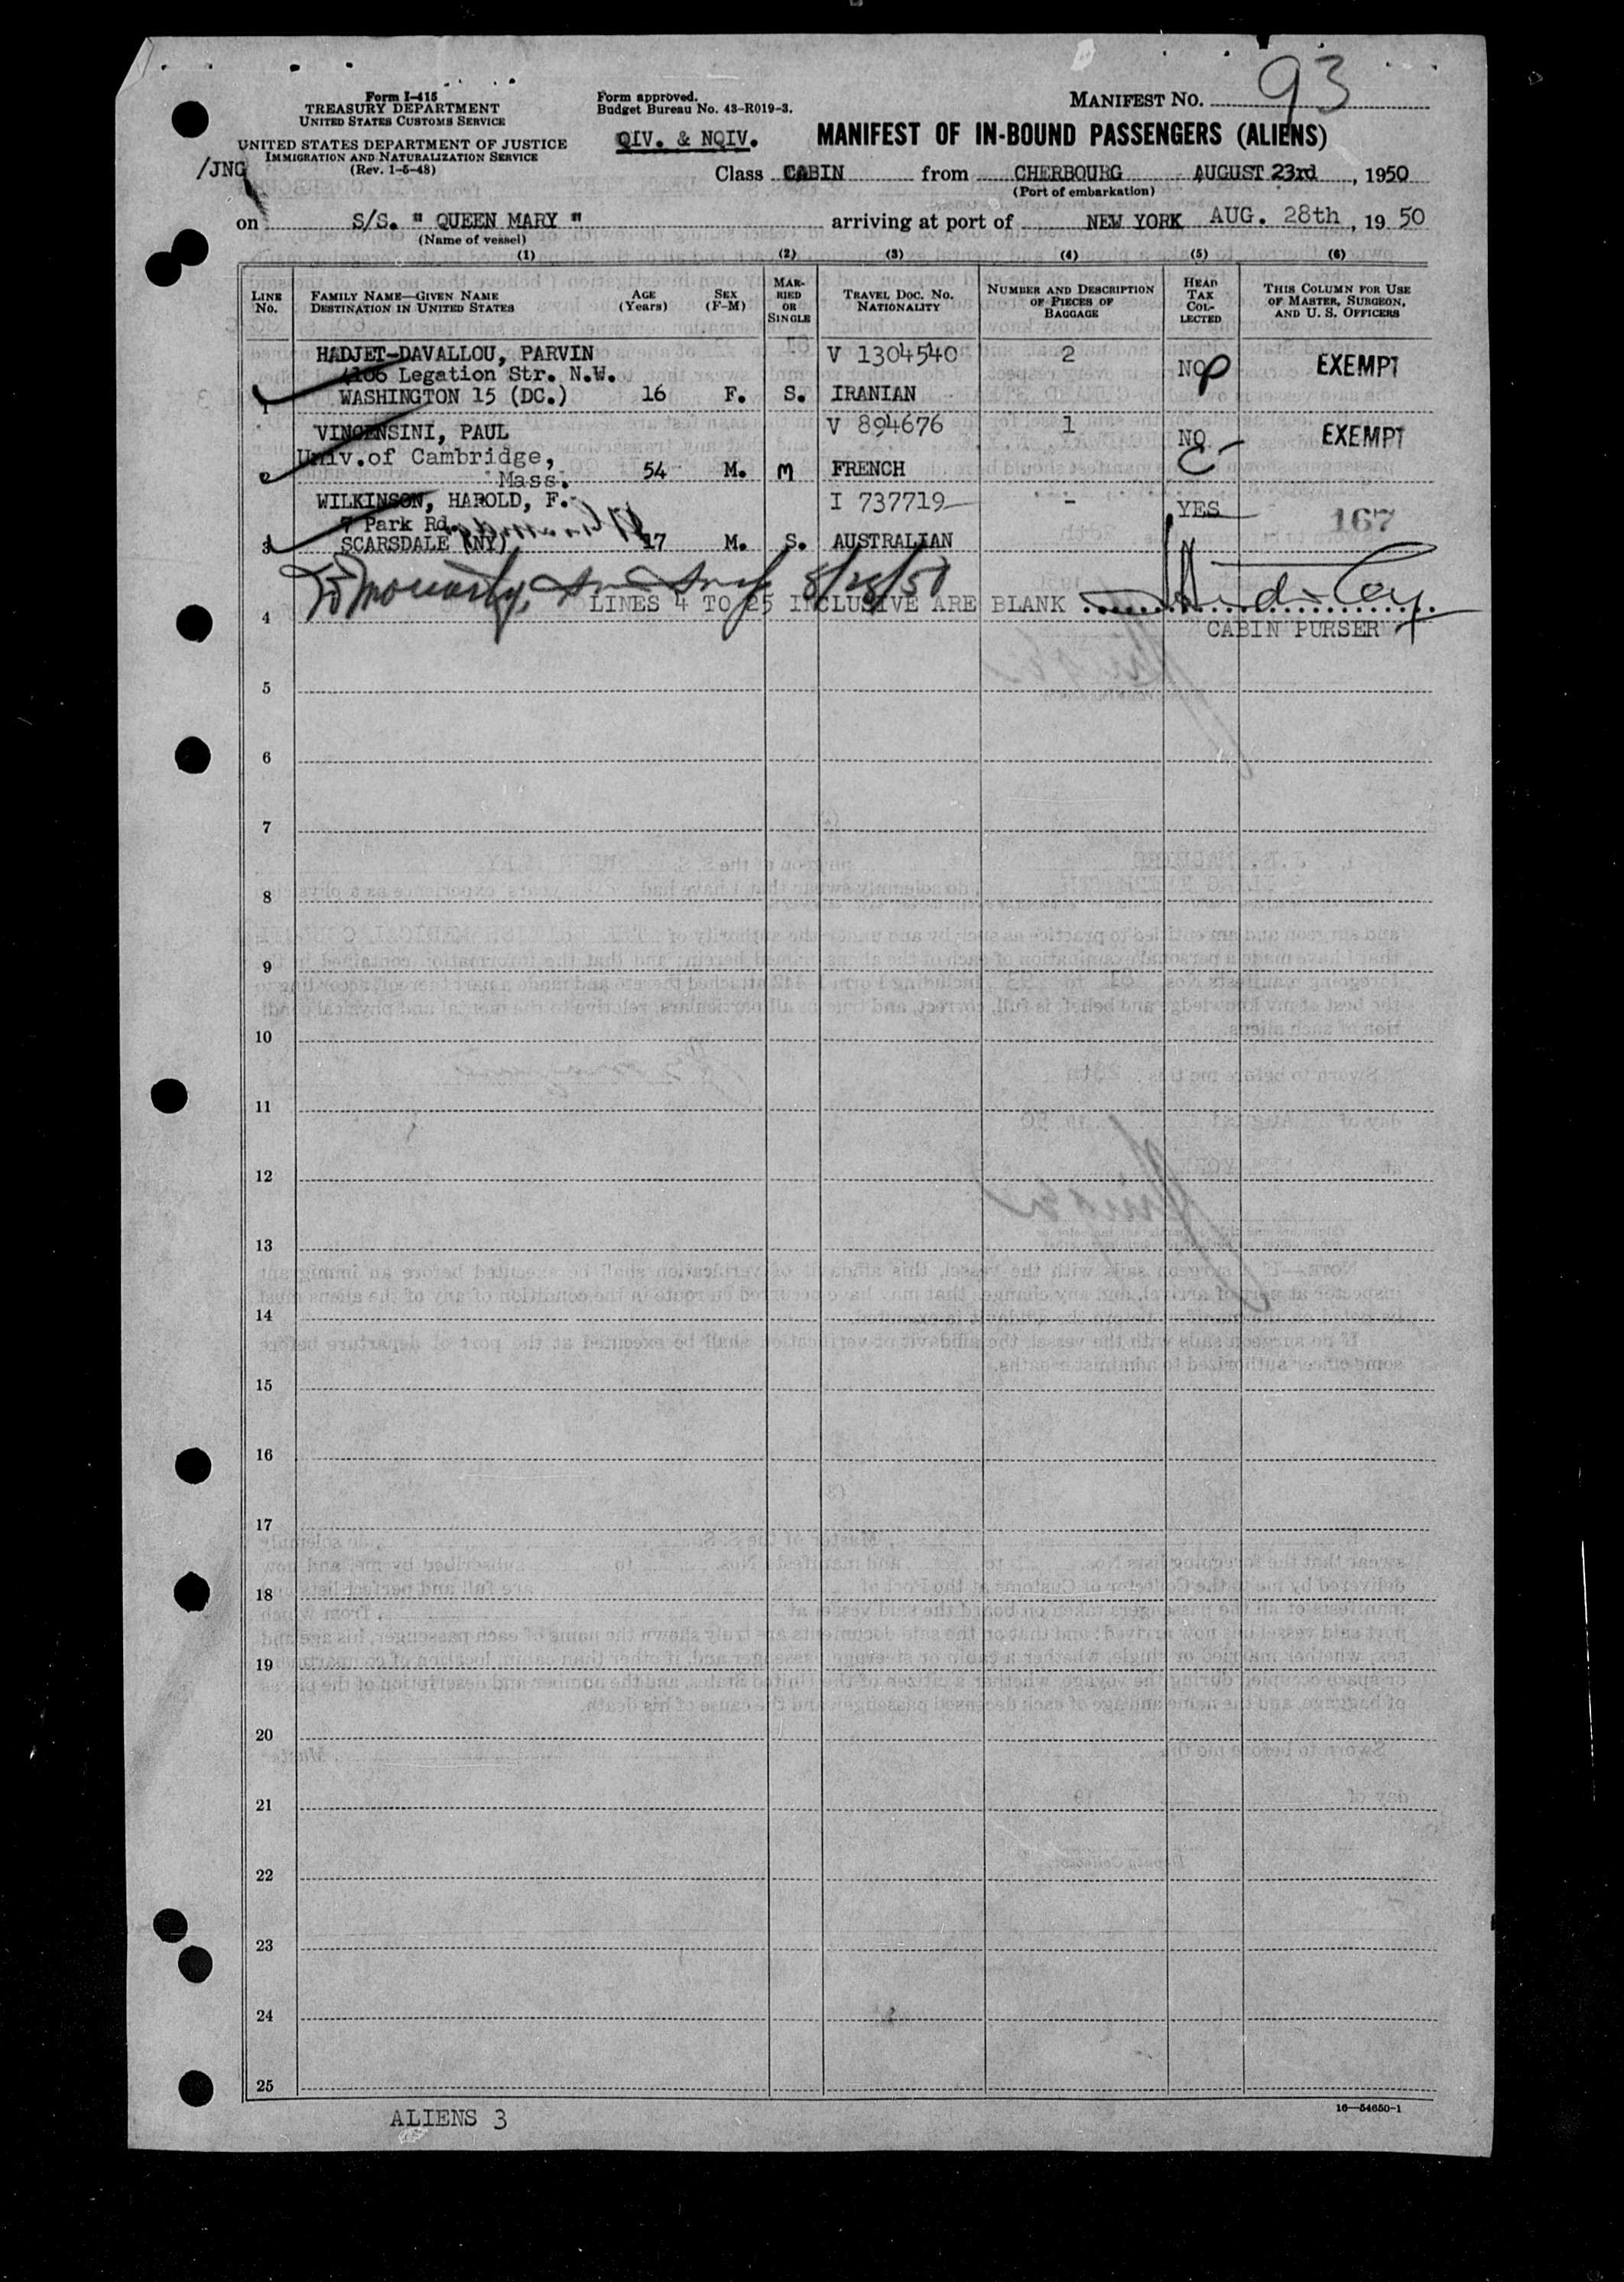 Form I-415
TREASURY DEPARTMENT
UNITED STATES CUSTOMS SERVICE
UNITED STATES DEPARTMENT OF JUSTICE
IMMIGRATION AND NATURALIZATION SERVICE
(Rev. 1-5-48)
/JNG
Form approved.
Budget Bureau No. 43-R019-3.
QIV. & NQIV.
MANIFEST NO. 93
MANIFEST OF IN-BOUND PASSENGERS (ALIENS)
Class CABIN from CHERBOURG AUGUST 23rd, 1950
(Port of embarkation)
on S/S. " QUEEN MARY " arriving at port of NEW YORK AUG. 28th, 19 50
(Name of vessel)
(1) (2) (3) (4) (5) (6)
LINE NO. FAMILY NAME—GIVEN NAME DESTINATION IN UNITED STATES AGE (Years) SEX (F-M) MARRIED OR SINGLE TRAVEL DOC. NO. NATIONALITY NUMBER AND DESCRIPTION OF PIECES OF BAGGAGE HEAD TAX COLLECTED THIS COLUMN FOR USE OF MASTER, SURGEON, AND U. S. OFFICERS
HADJET-DAVALLOU, PARVIN V 1304540 2 NO EXEMPT
4106 Legation Str. N.W.
1 WASHINGTON 15 (DC.) 16 F. S. IRANIAN
VINCENSINI, PAUL V 894676 1 NO EXEMPT
Univ. of Cambridge,
2 Mass. 54 M. M FRENCH
WILKINSON, HAROLD, F. I 737719 - YES 167
7 Park Rd.
3 SCARSDALE (NY) 17 M. S. AUSTRALIAN
8/28/50
4 LINES 4 TO 25 INCLUSIVE ARE BLANK
CABIN PURSER
5
6
7
8
9
10
11
12
13
14
15
16
17
18
19
20
21
22
23
24
25
ALIENS 3
16—54650-1